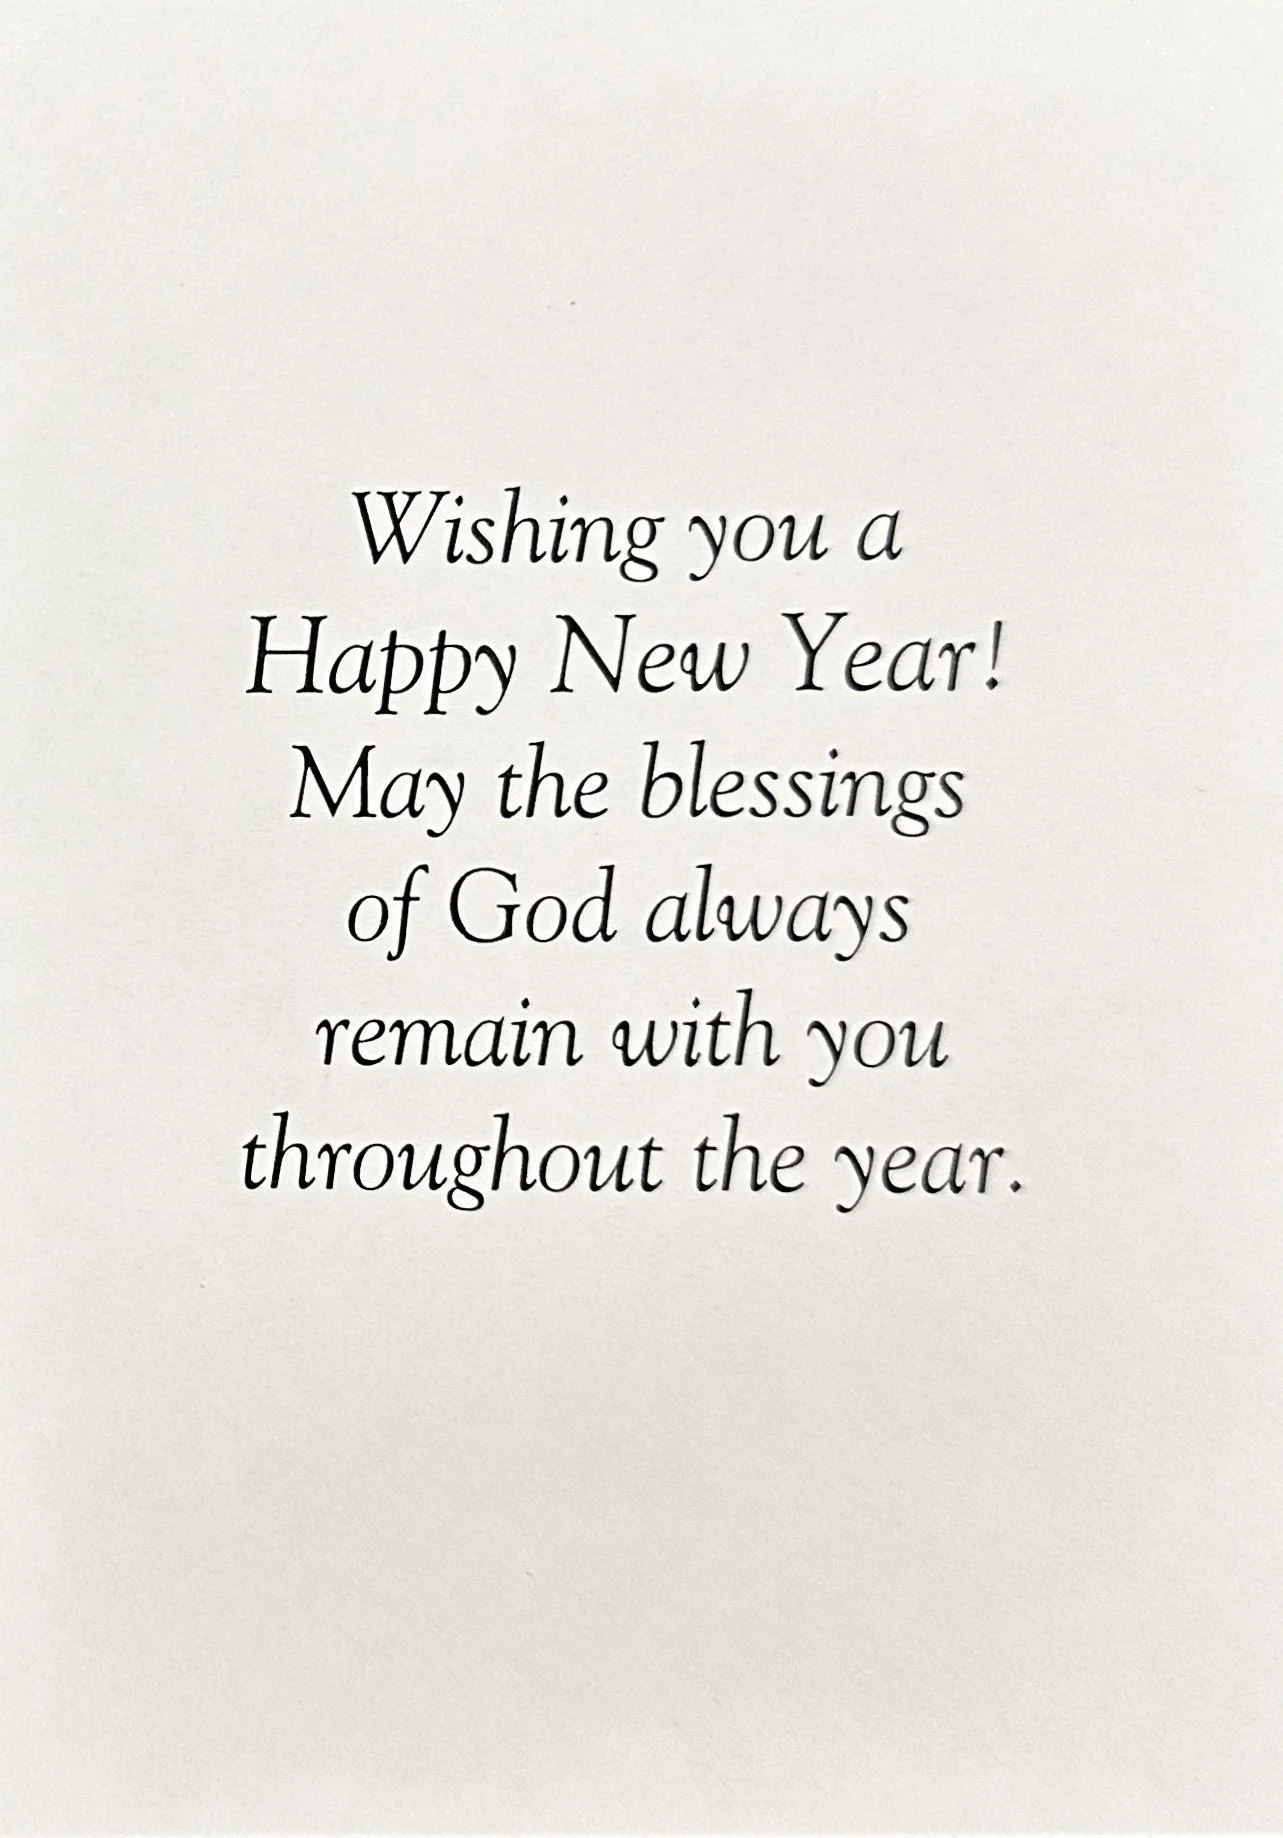 Wishing you a
Happy New Year!
May the blessings
of God always
remain with you
throughout the year.